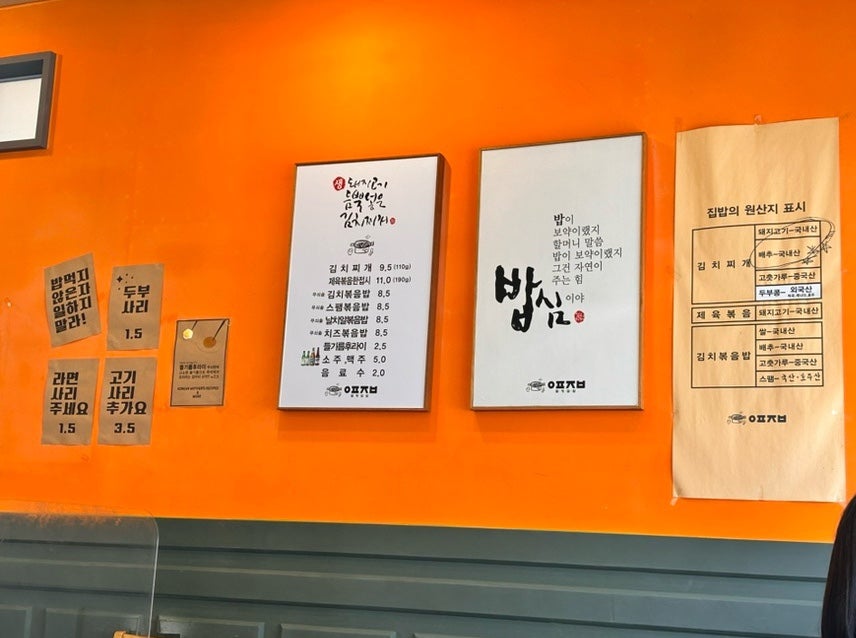 밥먹지
않은자
일하지
말라!
두부
사리
1.5
라면
사리
주세요
1.5
고기
사리
추가요
3.5
들기름후라이
생 돼지고기
듬뿍넣은
김치찌개
김치찌개 9,5 (110g)
제육볶음한접시 11,0 (190g)
김치볶음밥 8,5
스팸볶음밥 8,5
날치알볶음밥 8,5
치즈볶음밥 8,5
들기름후라이 2,5
소주,맥주 5,0
음료수 2,0
밥이
보약이랬지
할머니 말씀
밥이 보약이랬지
그건 자연이
주는 힘
밥심이야
집밥의 원산지 표시
김치찌개
돼지고기-국내산
배추-국내산
고춧가루-중국산
두부콩- 외국산
제육볶음 돼지고기-국내산
김치볶음밥
쌀-국내산
배추-국내산
고춧가루-중국산
스팸-